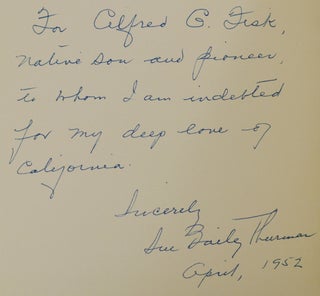 For Alfred G. Fisk,
native son and pioneer,
to whom I am indebted
for my deep love of
California.
Sincerely
Sue Bailey Thurman
April, 1952